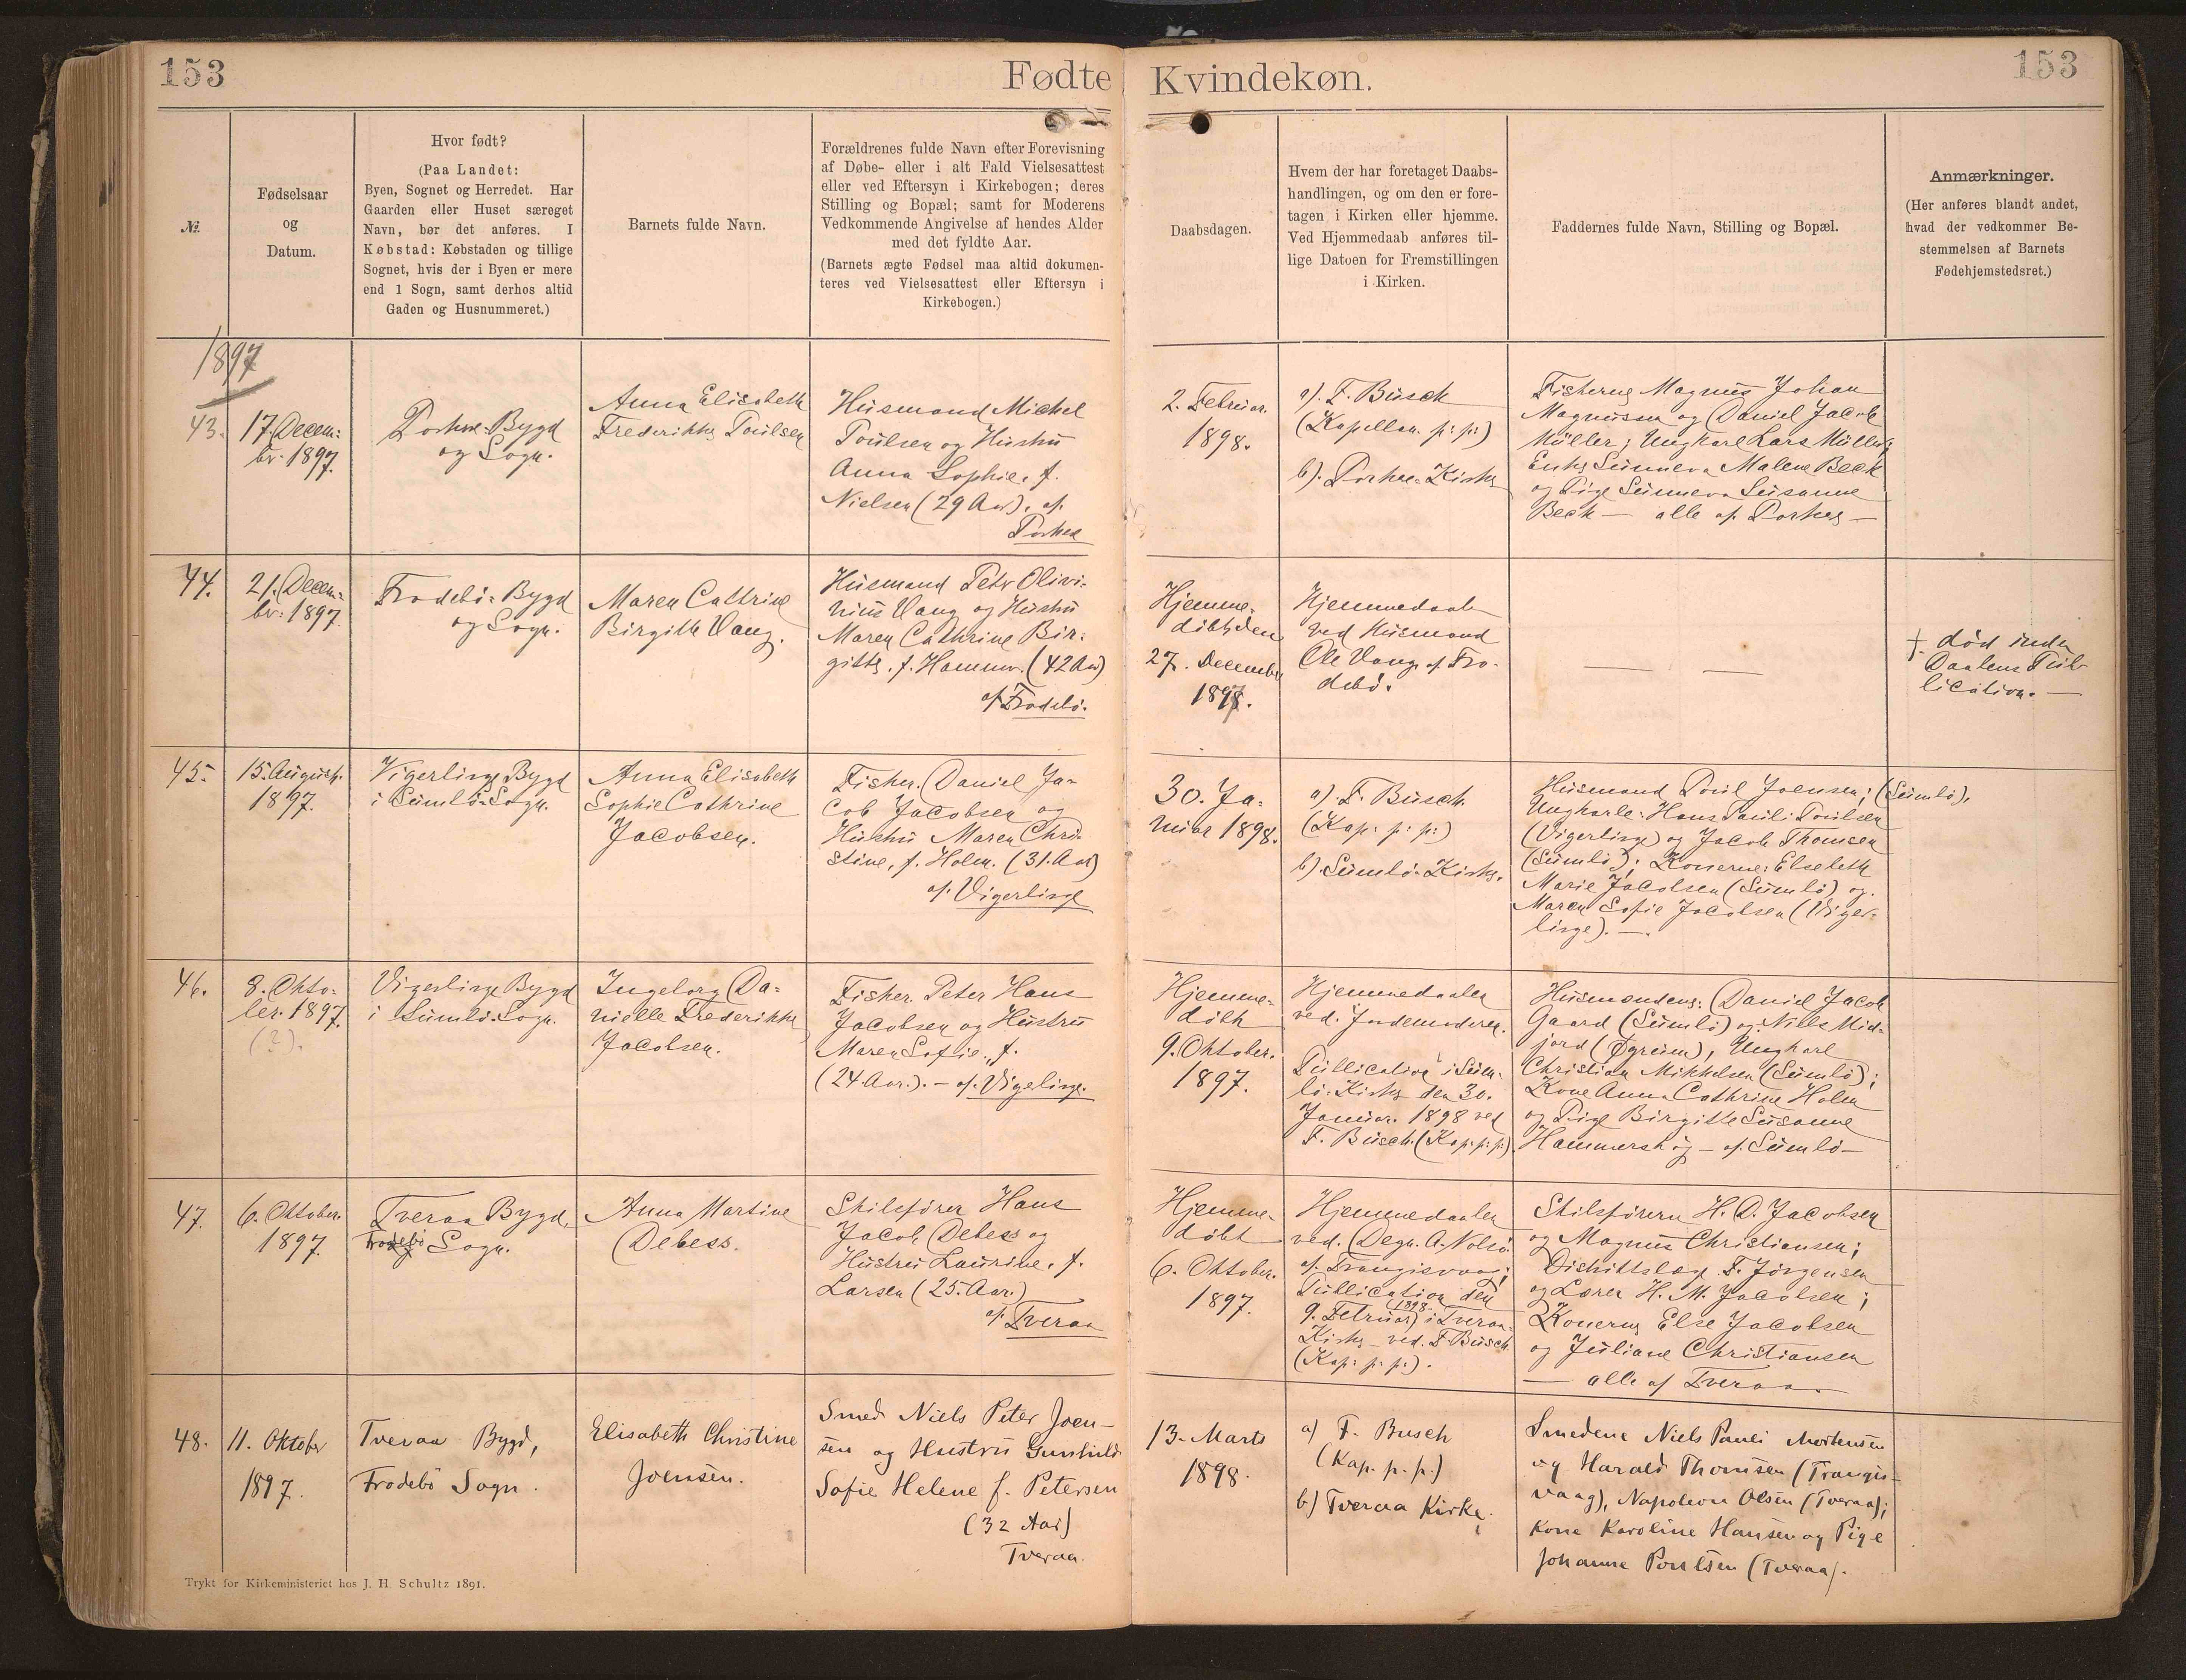 153
Fødte
Kvindekøn.
153
No.
Fødselsaar
og
Datum.
Hvor født?
(Paa Landet:
Byen, Sognet og Herredet. Har
Gaarden eller Huset særeget
Navn, bør det anføres. I
Købstad: Købstaden og tillige
Sognet, hvis der i Byen er mere
end 1 Sogn, samt derhos altid
Gaden og Husnummeret.)
Barnets fulde Navn.
Forældrenes fulde Navn efter Forevisning
af Døbe- eller i alt Fald Vielsesattest
eller ved Eftersyn i Kirkebogen; deres
Stilling og Bopæl; samt for Moderens
Vedkommende Angivelse af hendes Alder
med det fyldte Aar.
(Barnets ægte Fødsel maa altid dokumen-
teres ved Vielsesattest eller Eftersyn i
Kirkebogen.)
Daabsdagen.
Hvem der har foretaget Daabs-
handlingen, og om den er fore-
tagen i Kirken eller hjemme.
Ved Hjemmedaab anføres til-
lige Datoen for Fremstillingen
i Kirken.
Faddernes fulde Navn, Stilling og Bopæl.
Anmærkninger.
(Her anføres blandt andet,
hvad der vedkommer Be-
stemmelsen af Barnets
Fødehjemstedsret.)
1897
43.
17. Decem-
br. 1897.
Porkere Bygd
og Sogn.
Anna Elisabeth
Frederikke Poülsen
Hüsmand Michel
Poülsen og Hüstrü
Anna Sophie, f.
Nielsen (29 Aar), af
Porkere
2. Februar
1898.
a). F. Büsch
(Kapellan p: p:)
b). Porkere Kirke
Fiskerne Magnüs Johan
Magnussen og Daniel Jacob
Müller; Ungkarl Lars Müller;
Enke Sünneva Malene Beck
og Pige Sünneva Süsanne
Beck — alle af Porkere —
44.
21. Decem-
br. 1897.
Frodebö Bygd
og Sogn.
Maren Cathrine
Birgitte Vang.
Hüsmand Peter Olivi-
nius Vang og Hüstrü
Maren Cathrine Bir-
gitte, f. Hammer. (42 Aar)
af Frodebö.
Hjemme-
döbt den
27. December
1897.
Hjemmedaab
ved Hüsmand
Ole Vang af Fro-
debö.
— —
† död inden
Daabens Püb-
lication. —
45.
15. Aügust.
1897.
Vigerlinge Bygd
i Sümbö Sogn.
Anna Elisabeth
Sophie Cathrine
Jacobsen.
Fisker Daniel Ja-
cob Jacobsen og
Hüstrü Maren Chri-
stine, f. Holm. (31. Aar)
af Vigerlinge
30. Ja-
nüar 1898.
a). F. Büsch.
(Kap: p: p:)
b). Sümbö Kirke.
Hüsmand Poül Joensen; (Sümbö),
Ungkarle: Hans Paüli Poülsen
(Vigerlinge) og Jacob Thomsen
(Sümbö); Konerne: Elsebeth
Marie Jacobsen (Sümbö) og
Maren Sofie Jacobsen (Viger-
linge). —
46.
8. Okto-
ber. 1897.
(?).
Vigerlinge Bygd
i Sümbö Sogn.
Ingeborg Da-
nielle Frederikke
Jacobsen.
Fisker Peter Hans
Jacobsen og Hüstrü
Maren Sofie, f.
(24 Aar.). — af Vigelinge.
Hjemme-
döbt
9. Oktober.
1897.
Hjemmedaaben
ved. Jordemoderen.
Püblication i Süm-
bö Kirke den 30.
Janüar 1898 ved
F. Büsch. (Kap: p: p:)
Hüsmændene: Daniel Jacob
Gaard (Sümbö) og Niels Mid-
jord (Øgreim), Ungkarl
Christian Mikkelsen (Sümbö);
Kone Anna Cathrine Holm
og Pige Birgitte Süsanne
Hammershög — af Sümbö —
47.
6. Oktober.
1897.
Tveraa Bygd,
Frodebö Sogn.
Anna Martine
Debess.
Skibsförer Hans
Jacob Debess og
Hüstrü Laürine, f.
Larsen (25. Aar.)
af Tveraa
Hjemme-
döbt
6. Oktober.
1897.
Hjemmedaaben
ved. Degn. A. Nolsö
af Trangisvaag;
Püblication den
9. Februar 1898 i Tveraa
Kirke — ved. F. Büsch
(Kap: p: p:).
Skibsförerne H. D. Jacobsen
og Magnüs Christiansen;
Distriktslæge F. Jörgensen
og Lærer H. M. Jacobsen;
Konerne Else Jacobsen
og Jüliane Christiansen
— alle af Tveraa.
48.
11. Oktober
1897.
Tveraa Bygd,
Frodebö Sogn.
Elisabeth Christine
Joensen.
Smed Niels Peter Joen-
sen og Hustru Gunhild
Sofie Helene f. Petersen
(32 Aar)
Tveraa.
13. Marts
1898.
a) F. Busch
(Kap. p. p.)
b) Tveraa Kirke.
Smedene Niels Pauli Mortensen
og Harald Thomsen (Trangis-
vaag), Napoleon Olsen (Tveraa);
Kone Karoline Hansen og Pige
Johanne Poulsen (Tveraa).
Trykt for Kirkeministeriet hos J. H Schultz 1891.